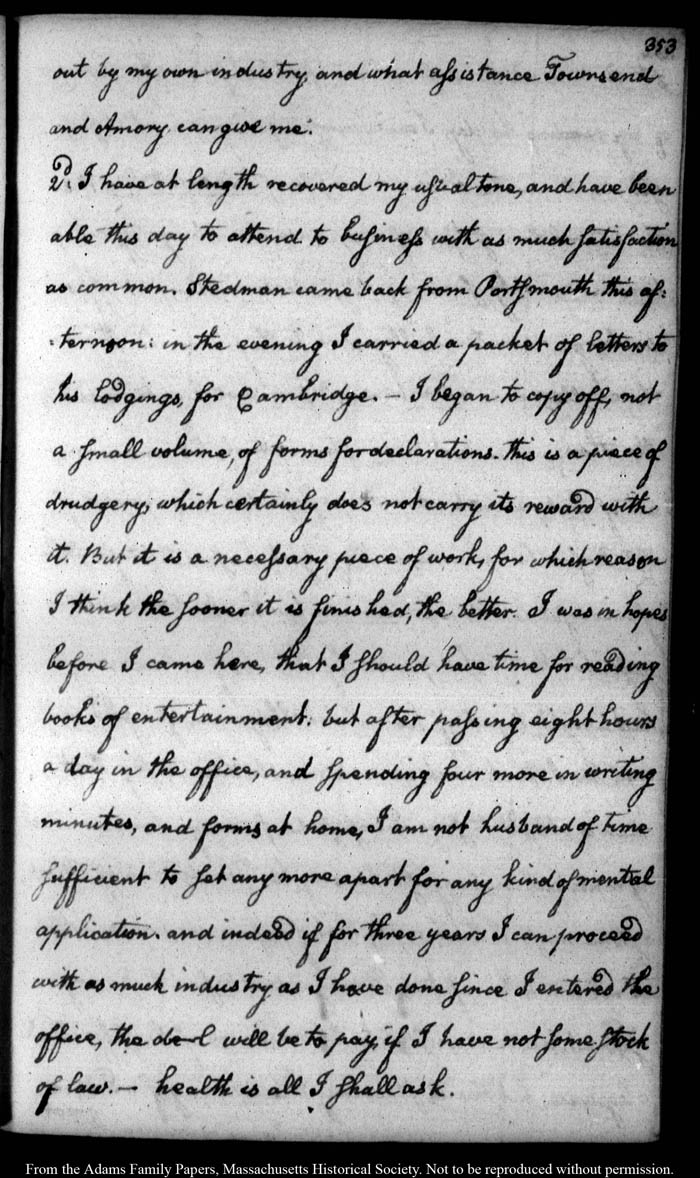 353
out by my own industry, and what assistance Townsend
and Amory can give me.
2d. I have at length recovered my usual tone, and have been
able this day to attend to business with as much satisfaction
as common. Stedman came back from Portsmouth this af:
:ternoon: in the evening I carried a packet of letters to
his lodgings, for Cambridge. — I began to copy off, not
a small volume, of forms for declarations. this is a piece of
drudgery, which certainly does not carry its reward with
it. But it is a necessary piece of work, for which reason
I think the sooner it is finished, the better. I was in hopes
before I came here, that I should have time for reading
books of entertainment: but after passing eight hours
a day in the office, and spending four more in writing
minutes, and forms at home, I am not husband of time
sufficient to set any more apart for any kind of mental
application. and indeed if for three years I can proceed
with as much industry as I have done since I entered the
office, the de—l will be to pay, if I have not some stock
of law. — health is all I shall ask.
From the Adams Family Papers, Massachusetts Historical Society. Not to be reproduced without permission.